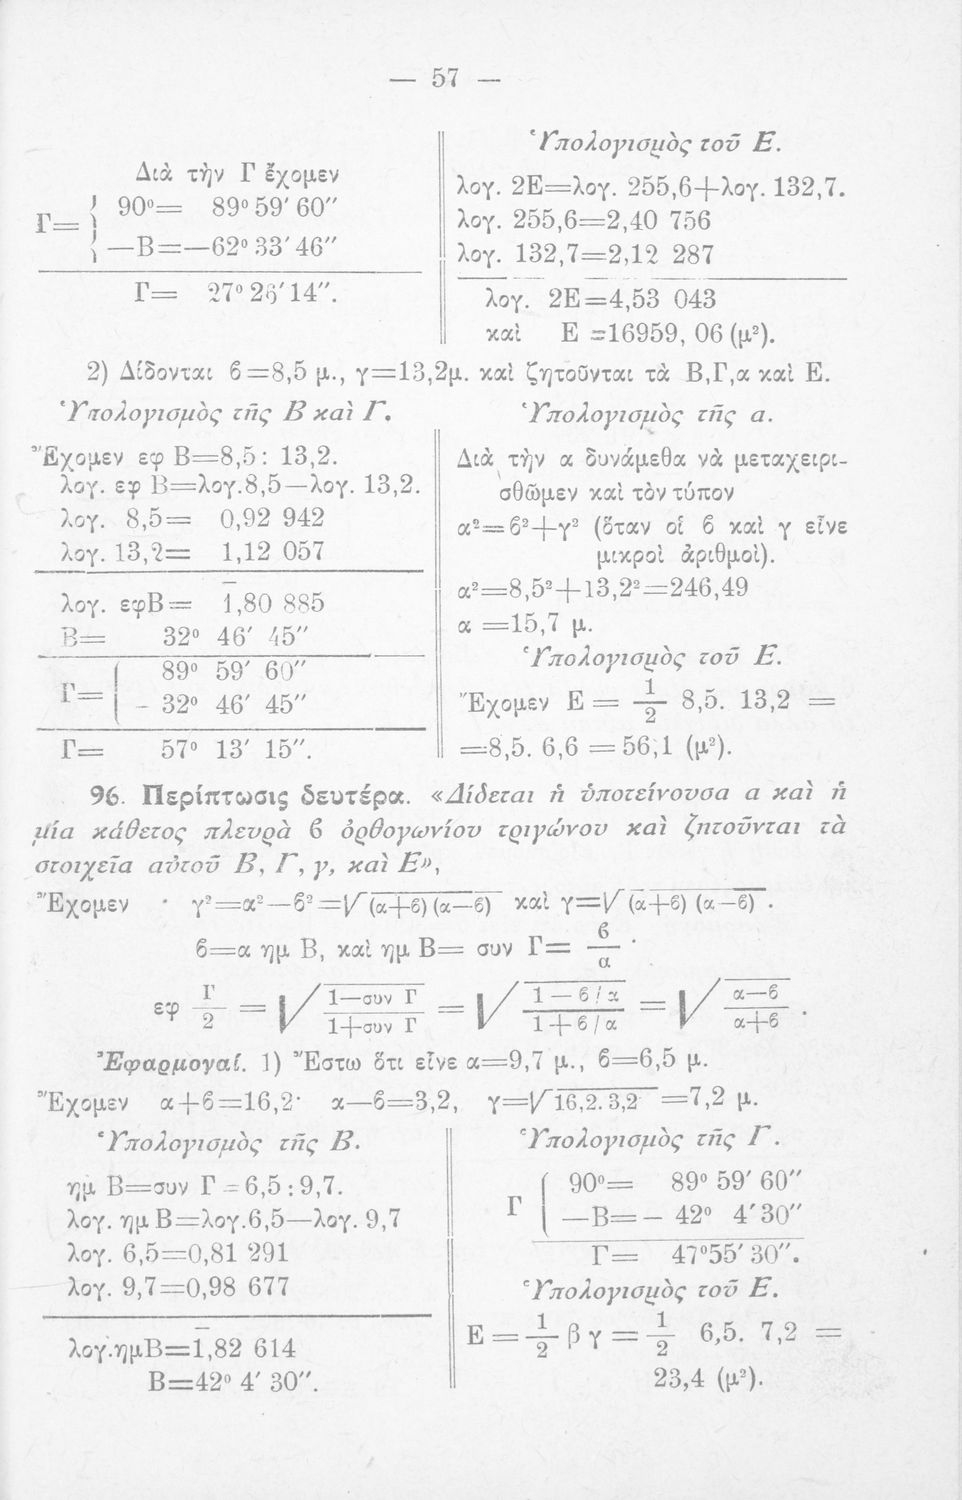 — 57 —
Διὰ τὴν Γ ἔχομεν
Γ= { 90°= 89° 59′ 60″
—Β=—62° 33′ 46″
Γ= 27° 26′ 14″.
Ὑπολογισμὸς τοῦ Ε.
λογ. 2Ε=λογ. 255,6+λογ. 132,7.
λογ. 255,6=2,40 756
λογ. 132,7=2,12 287
λογ. 2Ε=4,53 043
καὶ Ε =16959, 06 (μ²).
2) Δίδονται ϐ=8,5 μ., γ=13,2μ. καὶ ζητοῦνται τὰ Β,Γ,α καὶ Ε.
Ὑπολογισμὸς τῆς Β καὶ Γ.
Ἔχομεν εφ Β=8,5: 13,2.
λογ. εφ Β=λογ.8,5—λογ. 13,2.
λογ. 8,5= 0,92 942
λογ. 13,2= 1,12 057
λογ. εφΒ= 1̅,80 885
Β= 32° 46′ 45″
Γ= { 89° 59′ 60″
- 32° 46′ 45″
Γ= 57° 13′ 15″.
Ὑπολογισμὸς τῆς α.
Διὰ τὴν α δυνάμεθα νὰ μεταχειρι-
σθῶμεν καὶ τὸν τύπον
α²=ϐ²+γ² (ὅταν οἱ ϐ καὶ γ εἶνε
μικροὶ ἀριθμοί).
α²=8,5²+13,2²=246,49
α =15,7 μ.
Ὑπολογισμὸς τοῦ Ε.
Ἔχομεν Ε = 1/2 8,5. 13,2 =
=8,5. 6,6 = 56,1 (μ²).
96. Περίπτωσις δευτέρα. «Δίδεται ἡ ὑποτείνουσα α καὶ ἡ
μία κάθετος πλευρὰ ϐ ὀρθογωνίου τριγώνου καὶ ζητοῦνται τὰ
στοιχεῖα αὐτοῦ Β, Γ, γ, καὶ Ε»,
Ἔχομεν γ²=α²—ϐ²=√(α+ϐ) (α—ϐ) καὶ γ=√(α+ϐ) (α—ϐ) .
ϐ=α ημ Β, καὶ ημ Β= συν Γ= ϐ/α ·
εφ Γ/2 = √(1—συν Γ)/(1+συν Γ) = √(1 — ϐ / α)/(1 + ϐ / α) = √(α—ϐ)/(α+ϐ) .
Ἐφαρμογαί. 1) Ἔστω ὅτι εἶνε α=9,7 μ., ϐ=6,5 μ.
Ἔχομεν α+ϐ=16,2· α—ϐ=3,2, γ=√16,2. 3,2 =7,2 μ.
Ὑπολογισμὸς τῆς Β.
ημ Β=συν Γ = 6,5 : 9,7.
λογ. ημ Β=λογ.6,5—λογ. 9,7
λογ. 6,5=0,81 291
λογ. 9,7=0,98 677
λογ.ημΒ=1̅,82 614
Β=42° 4′ 30″.
Ὑπολογισμὸς τῆς Γ.
Γ { 90°= 89° 59′ 60″
—Β=— 42° 4′ 30″
Γ= 47°55′ 30″.
Ὑπολογισμὸς τοῦ Ε.
Ε = 1/2 β γ = 1/2 6,5. 7,2 =
23,4 (μ²).